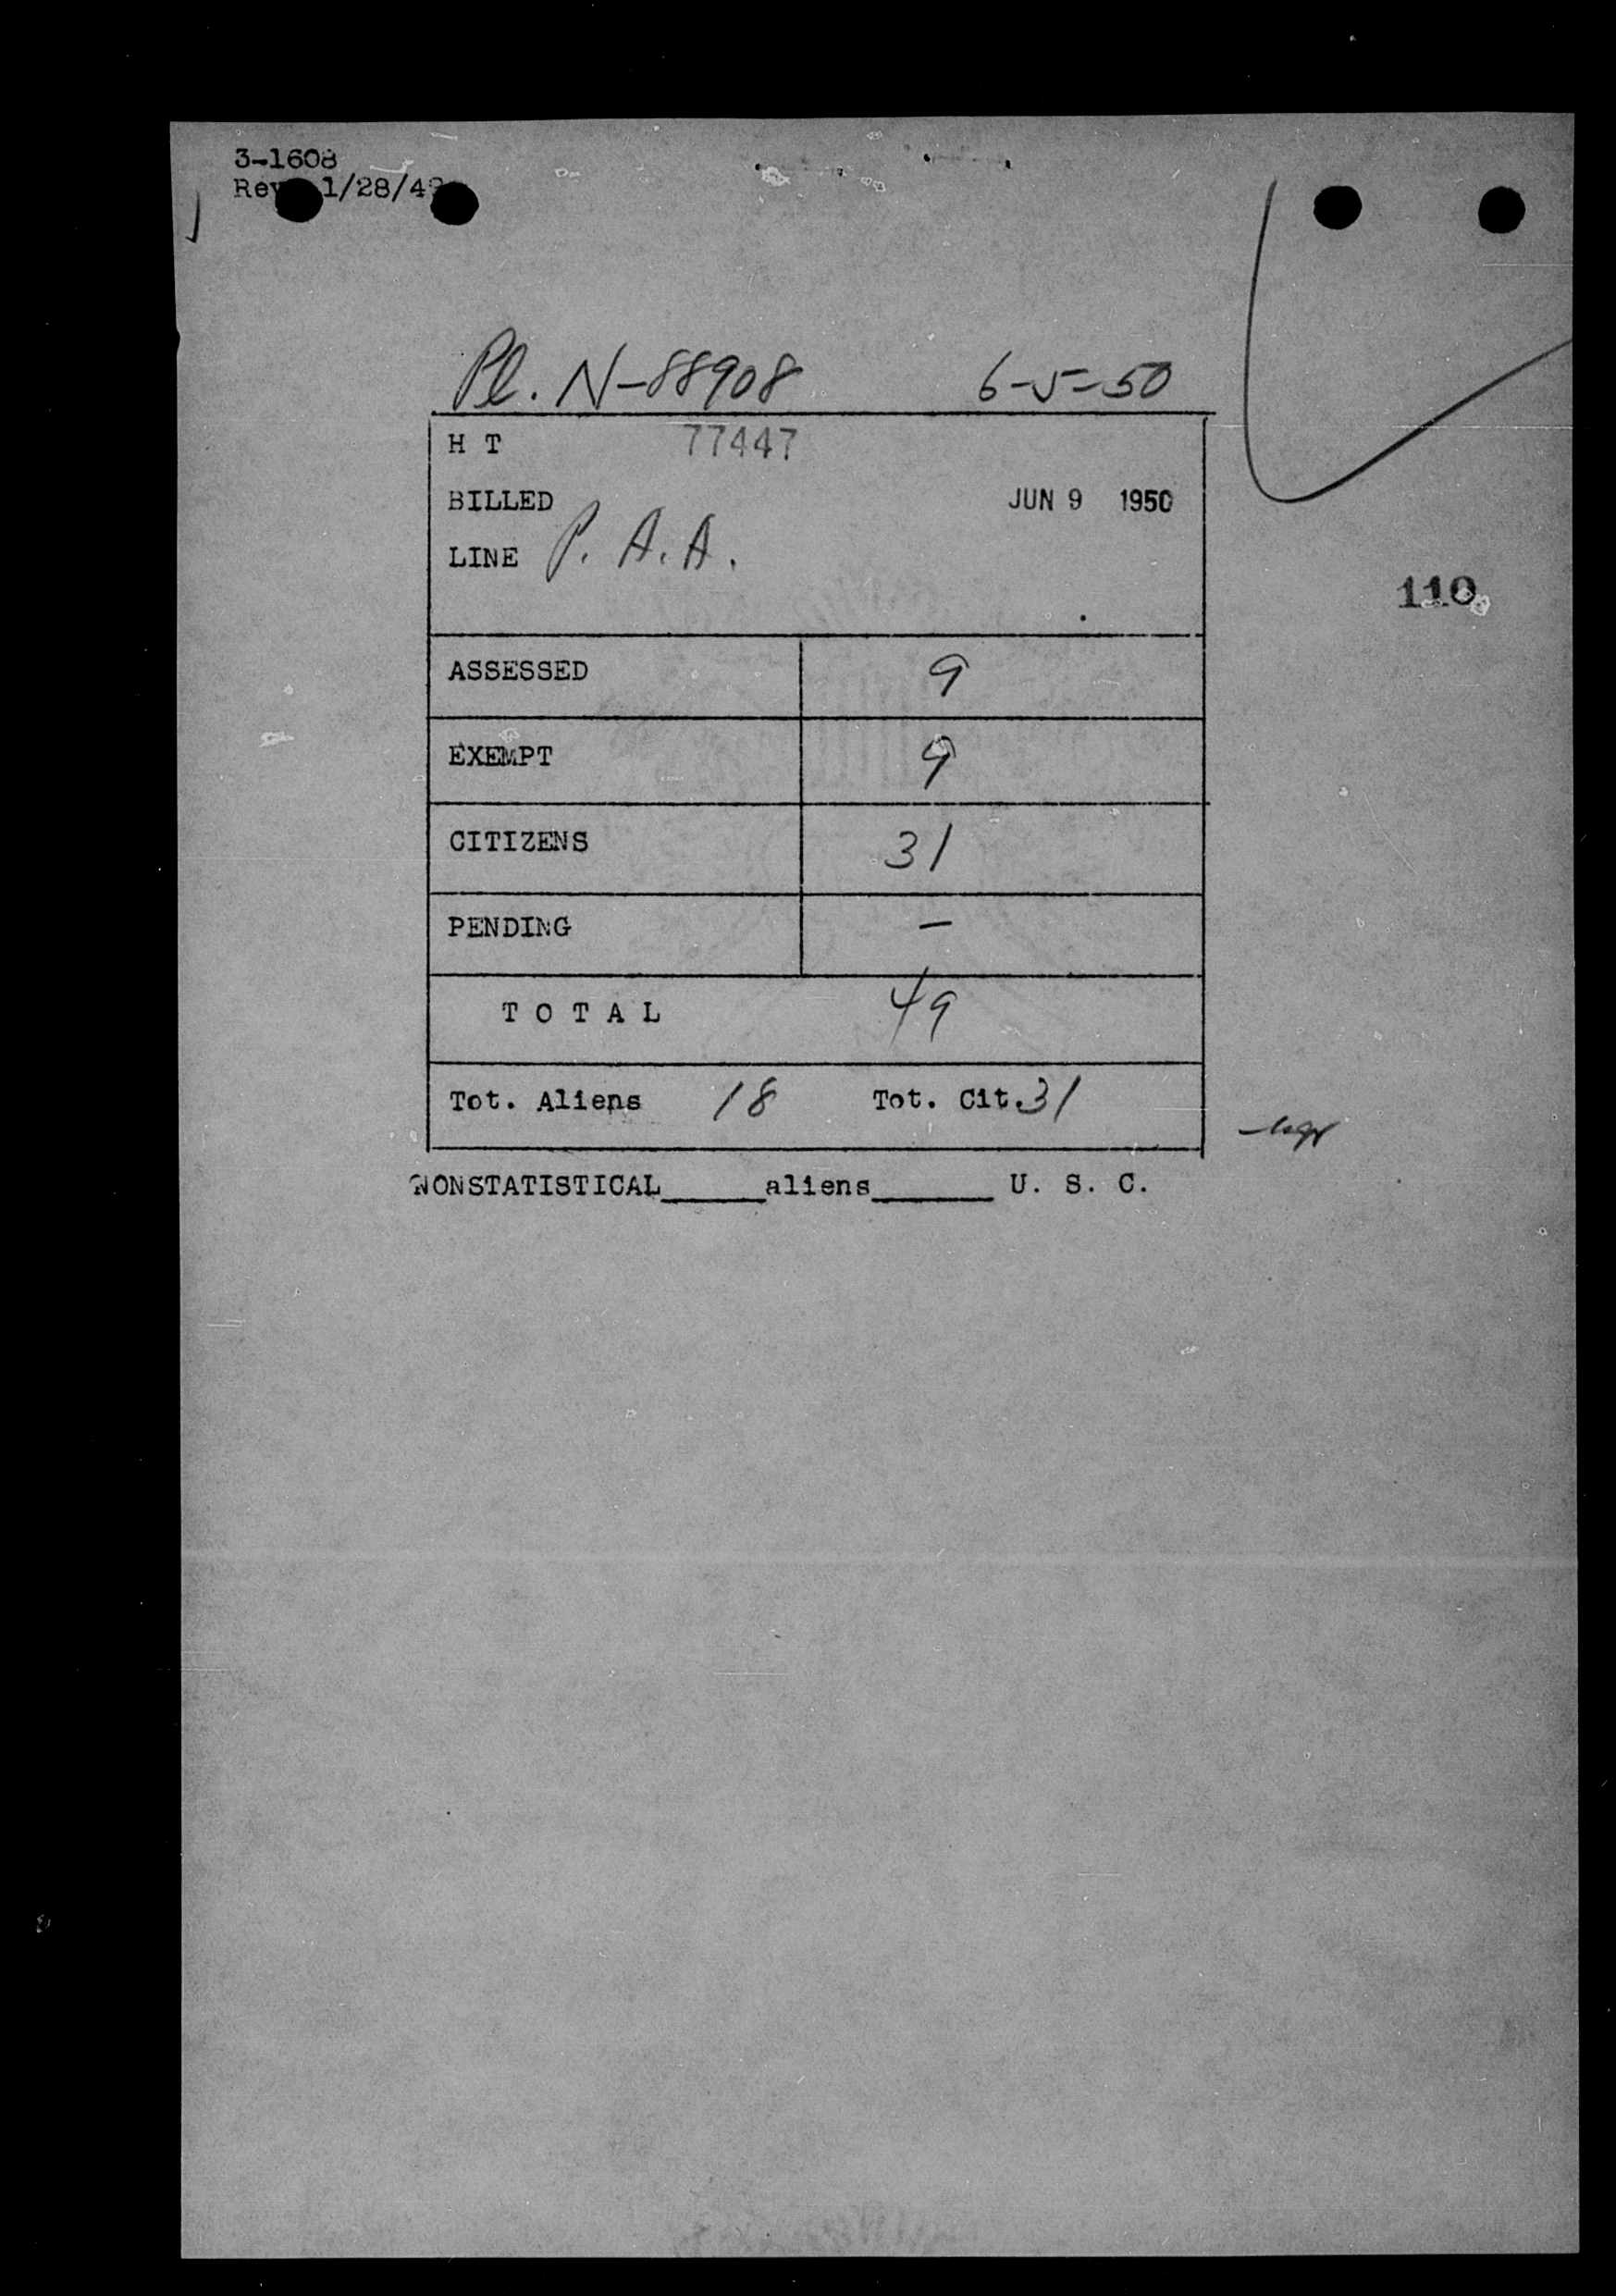 3-1608
Rev. 1/28/49
Pl. N-88908 6-5-50
H T 77447
BILLED JUN 9 1950
LINE P. A. A.
110
ASSESSED 9
EXEMPT 9
CITIZENS 31
PENDING —
TOTAL 49
Tot. Aliens 18 Tot. Cit. 31
NONSTATISTICAL______aliens_______ U. S. C.